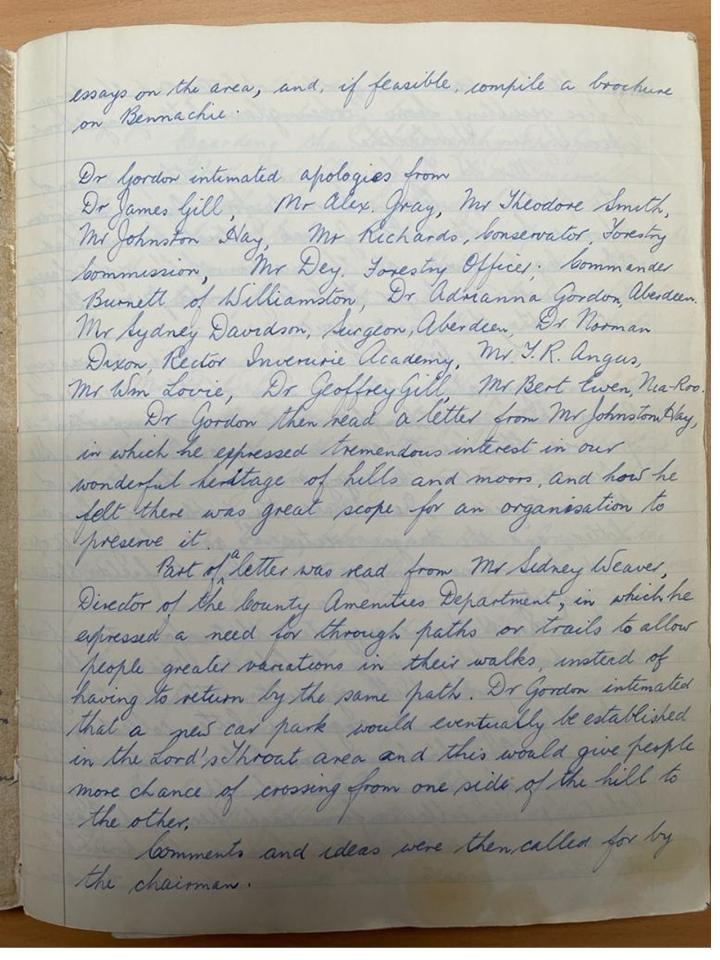 essays on the area, and, if feasible, compile a brochure
on Bennachie.
Dr Gordon intimated apologies from
Dr James Gill, Mr Alex. Gray, Mr Theodore Smith,
Mr Johnston Hay, Mr Richards, Conservator, Forestry
Commission, Mr Dey, Forestry Officer; Commander
Burnett of Williamston, Dr Adrianna Gordon, Aberdeen.
Mr Sydney Davidson, Surgeon, Aberdeen, Dr Norman
Dixon, Rector Inverurie Academy, Mr. T.R. Angus,
Mr Wm Lovie, Dr Geoffrey Gill, Mr Bert Ewen, Nia-Roo.
Dr Gordon then read a letter from Mr Johnston Hay,
in which he expressed tremendous interest in our
wonderful heritage of hills and moors, and how he
felt there was great scope for an organisation to
preserve it.
Part of a letter was read from Mr Sidney Weaver,
Director of the County Amenities Department, in which he
expressed a need for through paths or trails to allow
people greater variations in their walks, instead of
having to return by the same path. Dr Gordon intimated
that a new car park would eventually be established
in the Lord's Throat area and this would give people
more chance of crossing from one side of the hill to
the other.
Comments and ideas were then called for by
the chairman.